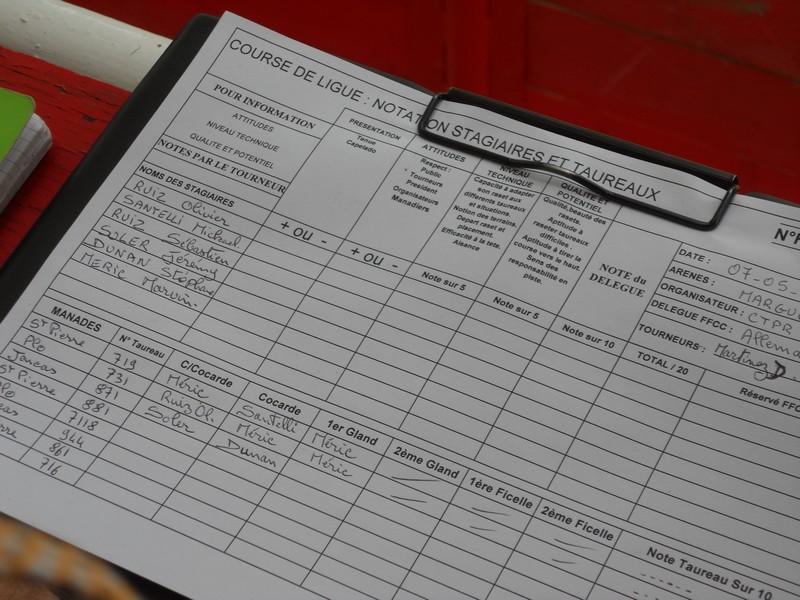 COURSE DE LIGUE : NOTATION STAGIAIRES ET TAUREAUX
POUR INFORMATION
ATTITUDES
NIVEAU TECHNIQUE
QUALITE ET POTENTIEL
NOTES PAR LE TOURNEUR
PRESENTATION
Tenue
Capelado
ATTITUDES
Respect :
Public
Tourneurs
President
Organisateurs
Manadiers
NIVEAU
TECHNIQUE
Capacité à adapter
son raset aux
différents taureaux
et situations.
Notion des terrains.
Depart raset et
placement.
Efficacité a la tete.
Aisance
QUALITE ET
POTENTIEL
Qualité,beauté des
rasets.
Aptitude à
raseter taureaux
difficiles .
Aptitude à tirer la
course vers le haut.
Sens des
responsabilité en
piste.
NOTE du
DELEGUE
N°
DATE : 07-05-
ARENES :
ORGANISATEUR : CTPR
DELEGUE FFCC :
TOURNEURS : Martinez D
NOMS DES STAGIAIRES
+ ou -
+ ou -
Note sur 5
Note sur 5
Note sur 10
TOTAL / 20
Réservé FFC
RUIZ Olivier
SANTELLI Michael
RUIZ Sébastien
SOLER Jérémy
DUNAN Stéphane
MERIC Marvin
MANADES
N° Taureau
C/Cocarde
Cocarde
1er Gland
2ème Gland
1ère Ficelle
2ème Ficelle
Note Taureau Sur 10
St Pierre 719 Méric Santelli Méric
Plo 731 Ruiz Ol. Méric Méric
Joncas 871 Soler Dunan
St Pierre 881
7118
944
861
716